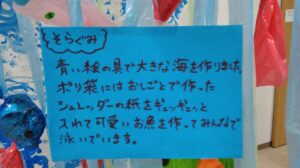 そらぐみ
青い絵の具で大きな海を作りました。
ポリ袋にはおしごとで作った
シュレッダーの紙をギュギュっと
入れて可愛いお魚を作ってみんなで
泳いでいます。